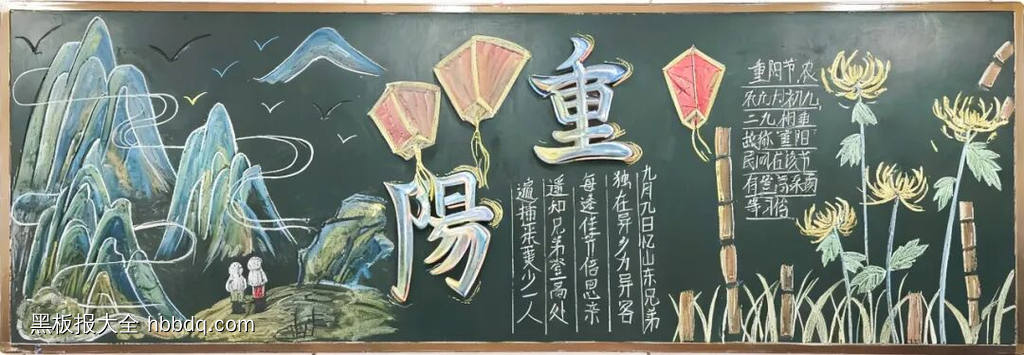 重
陽
九月九日忆山东兄弟
独在异乡为异客
每逢佳节倍思亲
遥知兄弟登高处
遍插茱萸少一人
重阳节,农
历九月初九,
二九相重
故称重阳
民间在该节
有登高采菊
等习俗
黑板报大全 hbbdq.com